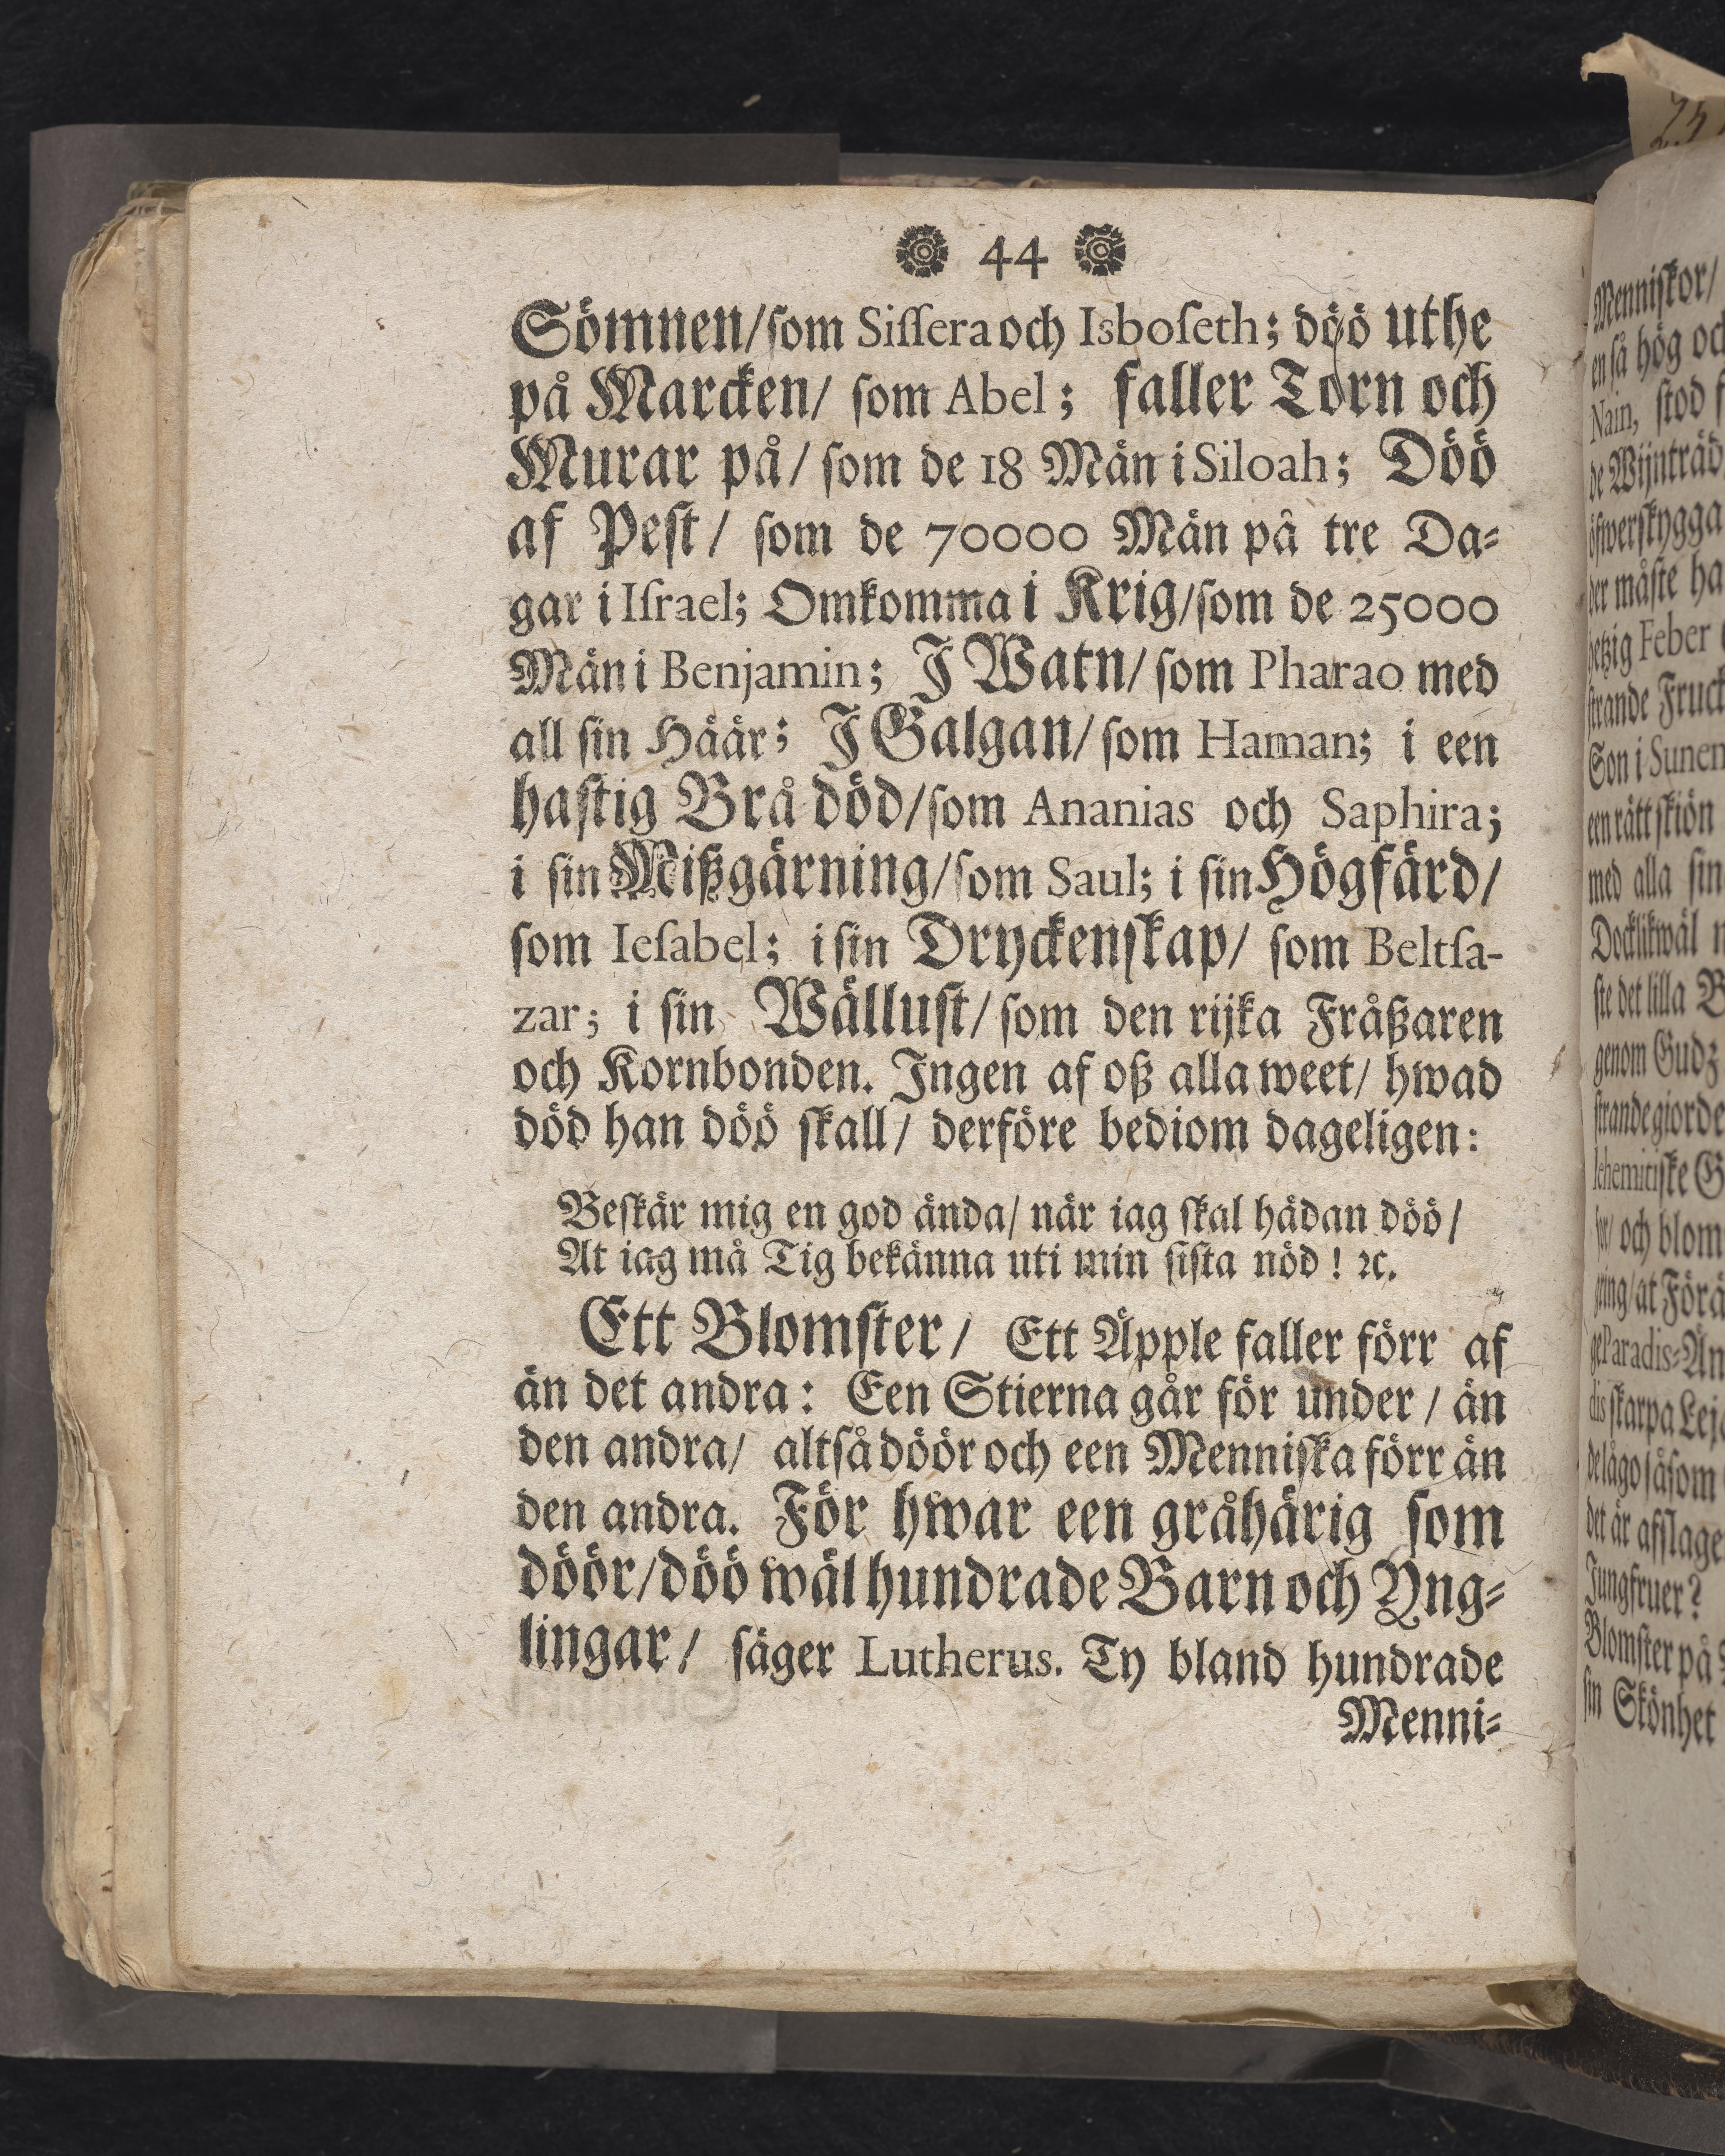 44
Sömnen/ som Siſſera och Isboſeth; döö uthe
på Marcken/ som Abel; faller Torn och
Murar på/ ſom de 18 Män i Siloah; Döö
af Peſt/ ſom de 70000 Män på tre Da-
gar i Iſrael; Omkomma i Krig/ſom de 25000
Män i Benjamin; J Watn/ ſom Pharao med
all ſin Häär; J Galgan/ ſom Haman; i een
haſtig Brå död/ſom Ananias och Saphira;
i ſin Mißgärning/ſom Saul; i ſin Högfärd/
ſom Ieſabel; i ſin Dryckenſkap/ ſom Beltſa-
zar; i ſin Wälluſt/ ſom den rijka Fråßaren
och Kornbonden. Jngen af oß alla weet/ hwad
död han döö ſkall/ derföre bediom dageligen:
Beſkär mig en god ända/ när iag ſkal hädan döö/
At iag må Tig bekänna uti min ſiſta nöd! ꝛc.
Ett Blomſter/ Ett Äpple faller förr af
än det andra: Een Stierna går för under/ än
den andra/ altſå döör och een Menniſka förr än
den andra. För hwar een gråhärig ſom
döör/döö wäl hundrade Barn och Yng-
lingar/ ſäger Lutherus. Ty bland hundrade
Menni-
Menniſkor/
en ſå hög och
Nain, ſtod
de Wijnträd
öfwerſkygga
der måſte ha
hetzig Feber
ſtrande Fruck
Son i Sunem
een rätt ſkiön
med alla ſin
Docklikwäl
ſte det lilla B
genom Gudz
ſtrande giorde
lehemitiſke G
och blom
ring/ at Förä
Paradis-Än
ſkarpa Lej
de lågo ſåſom
det är afſlage
Jungfruer?
Blomſter på
ſin Skönhet